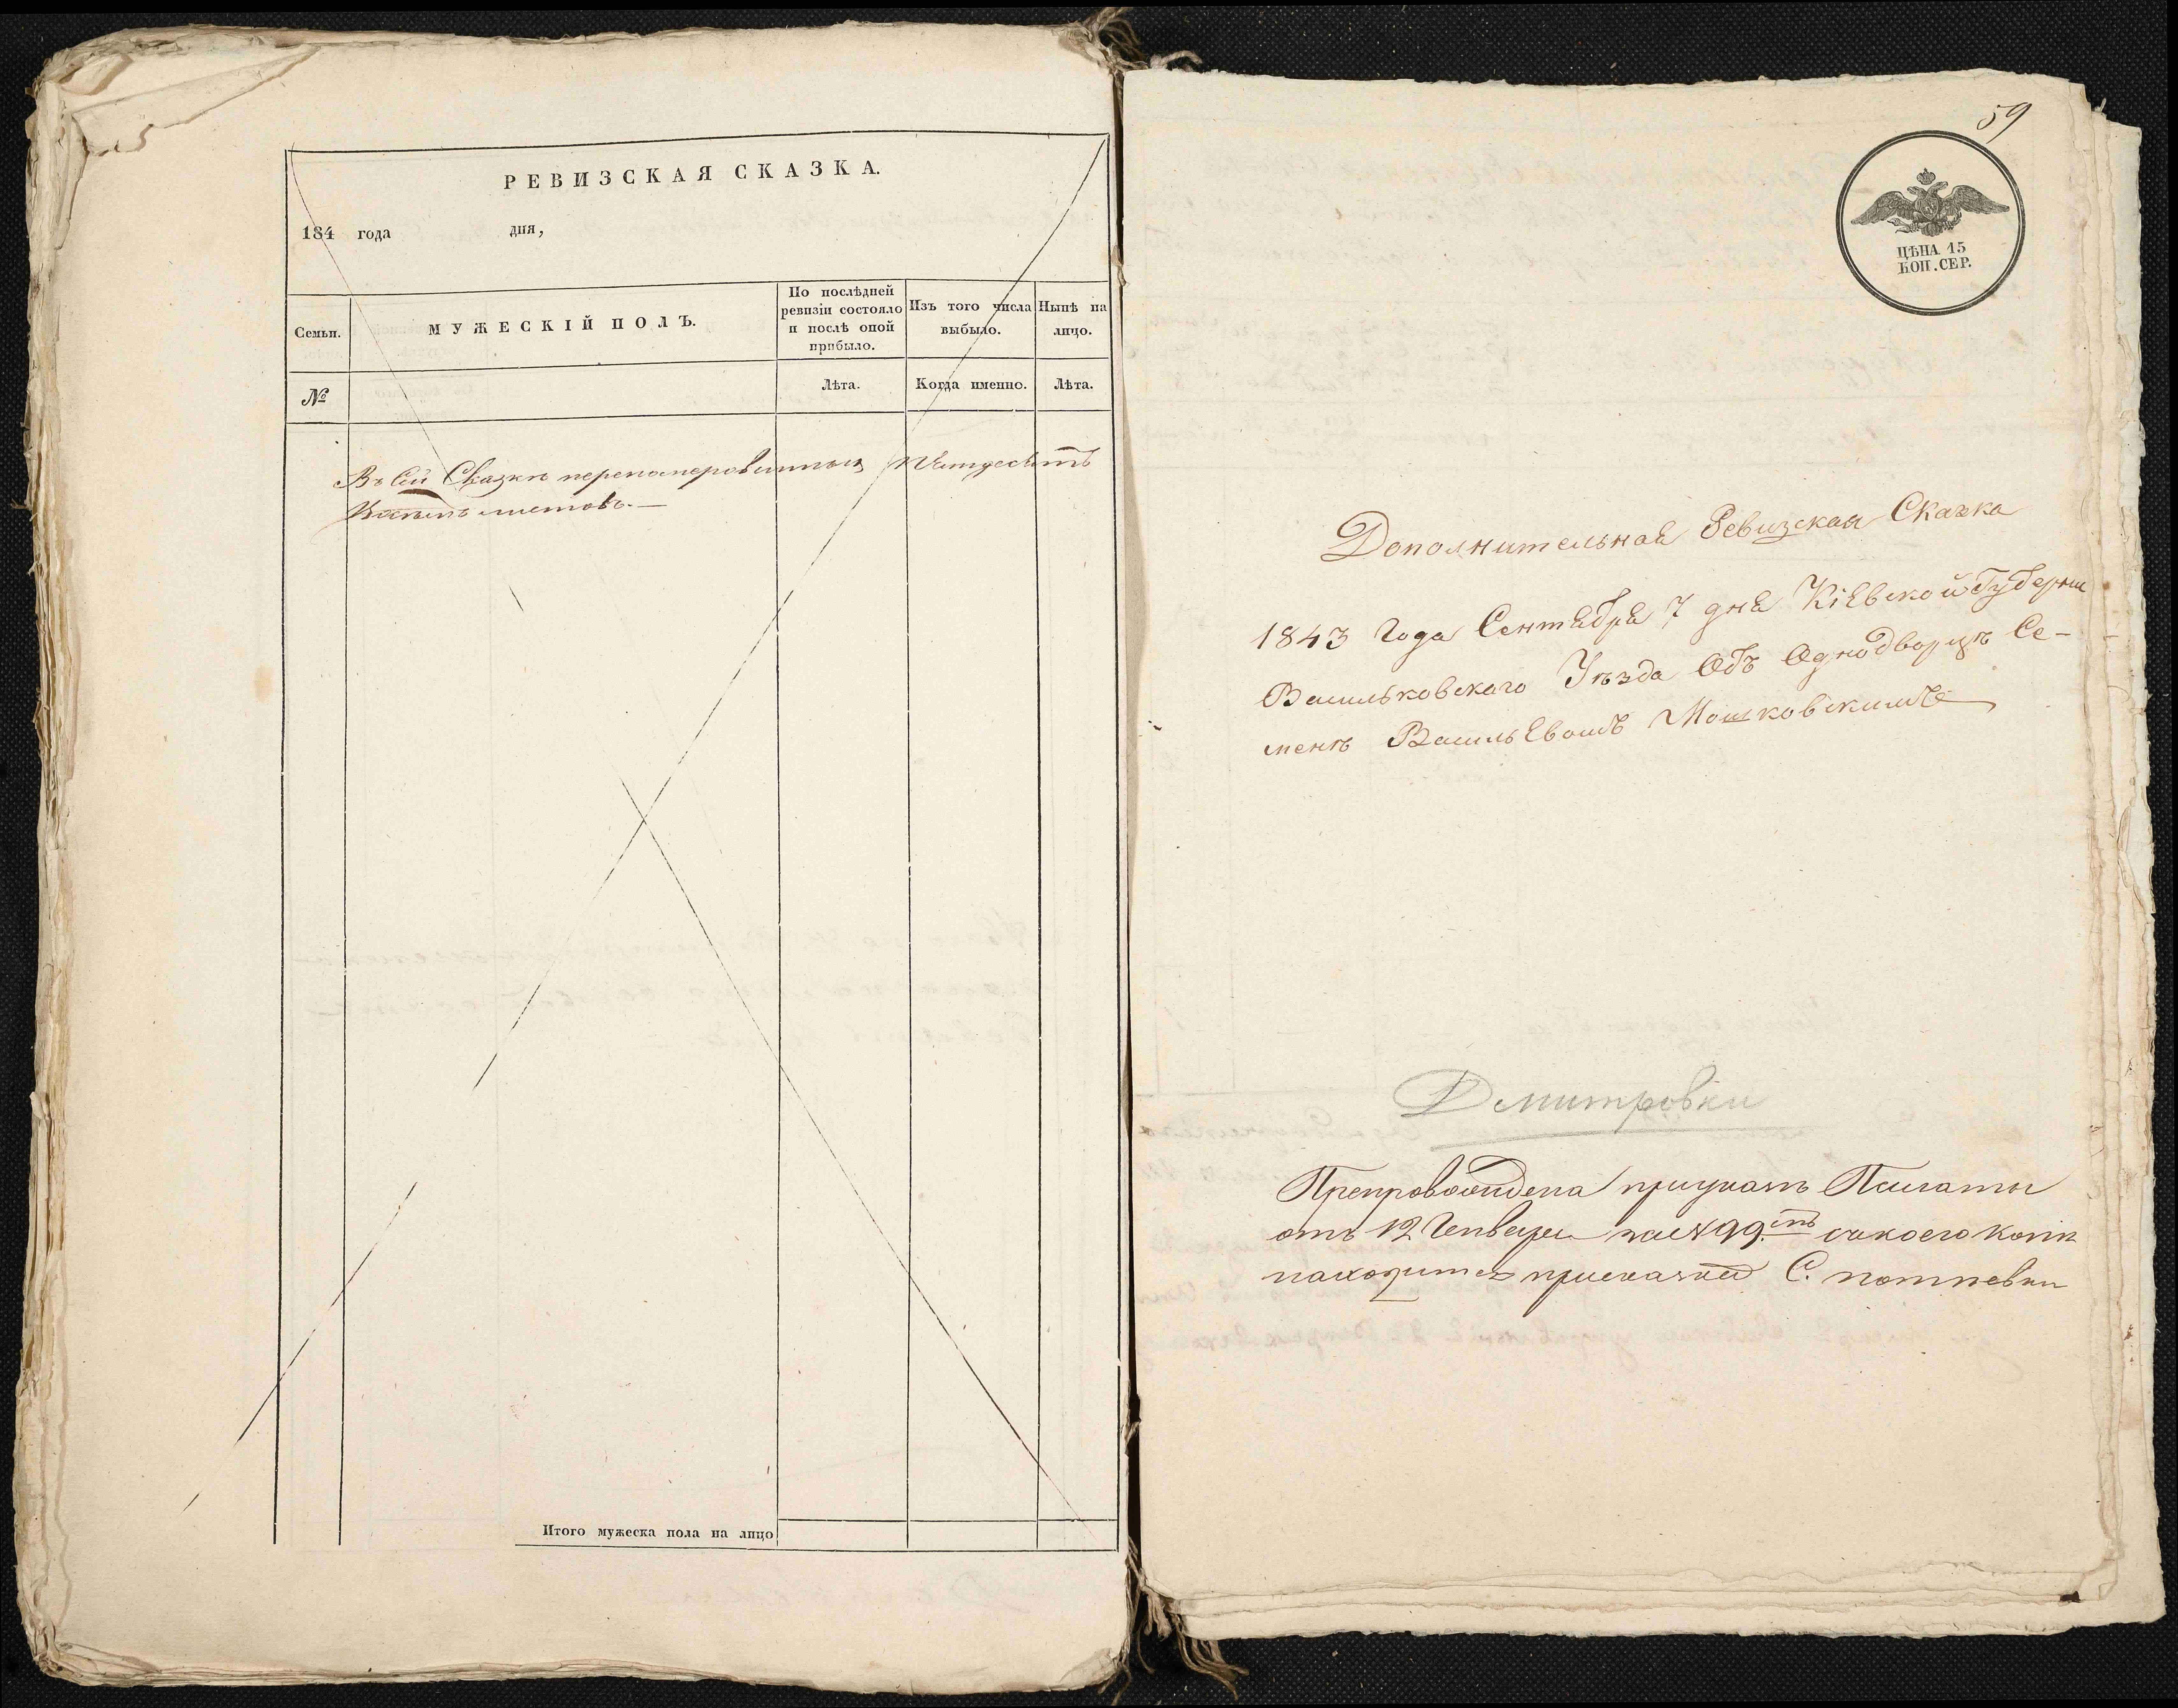 РЕВИЗСКАЯ СКАЗКА.
184 года дня,
Семьи.
МУЖЕСКІЙ ПОЛЪ.
По послѣдней ревизіи состояло и послѣ оной прибыло.
Изъ того числа выбыло.
Нынѣ на лицо.
№
Лѣта.
Когда именно.
Лѣта.
Въ сей Сказкѣ перенумерованныхъ Пятдесятъ
восемь листовъ.—
Итого мужеска пола на лицо
59
ЦѢНА 15
КОП. СЕР.
Дополнительная Ревизская Сказка
1843 года Сентября 7 дня Кіевской Губерніи
Васильковскаго Уѣзда Объ Однодворцѣ Се-
менѣ Васильевомъ Мошковскимъ
Дмитровки
Препровождена приуказѣ Палаты
отъ 12 Генваря за № 99.мъ сакоего копія
находится присказкѣ С. потѣевки